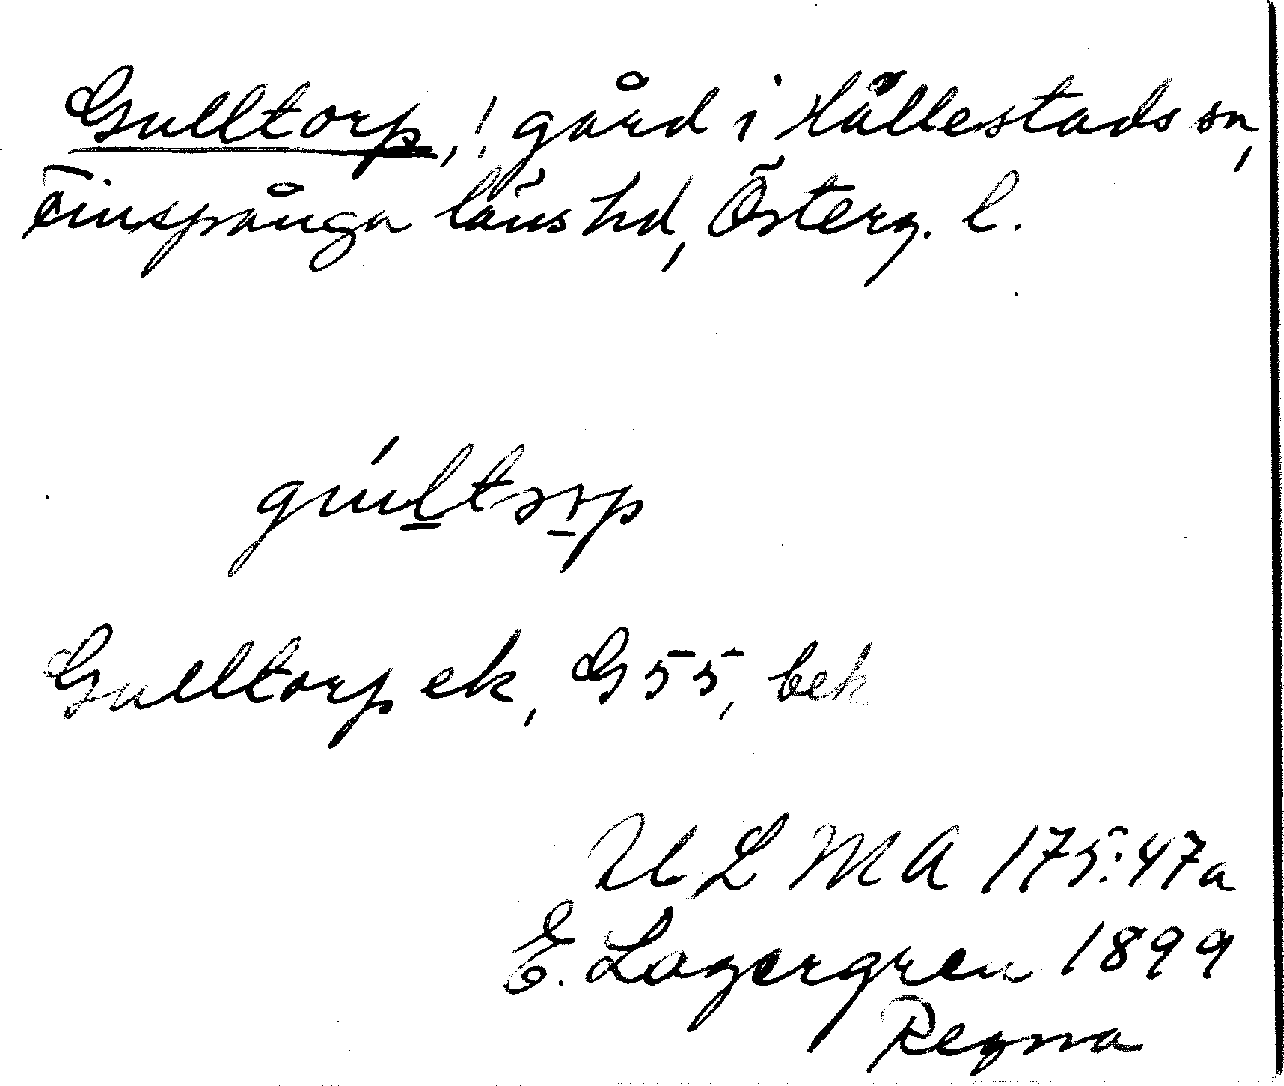 Gulltorp, ! gård i Hällestads sn,
Finspånga läns hd, Österg. l.
Gulltorp ek, G55, bek
ULMA 175:47a
E. Lagergren 1899
Regna